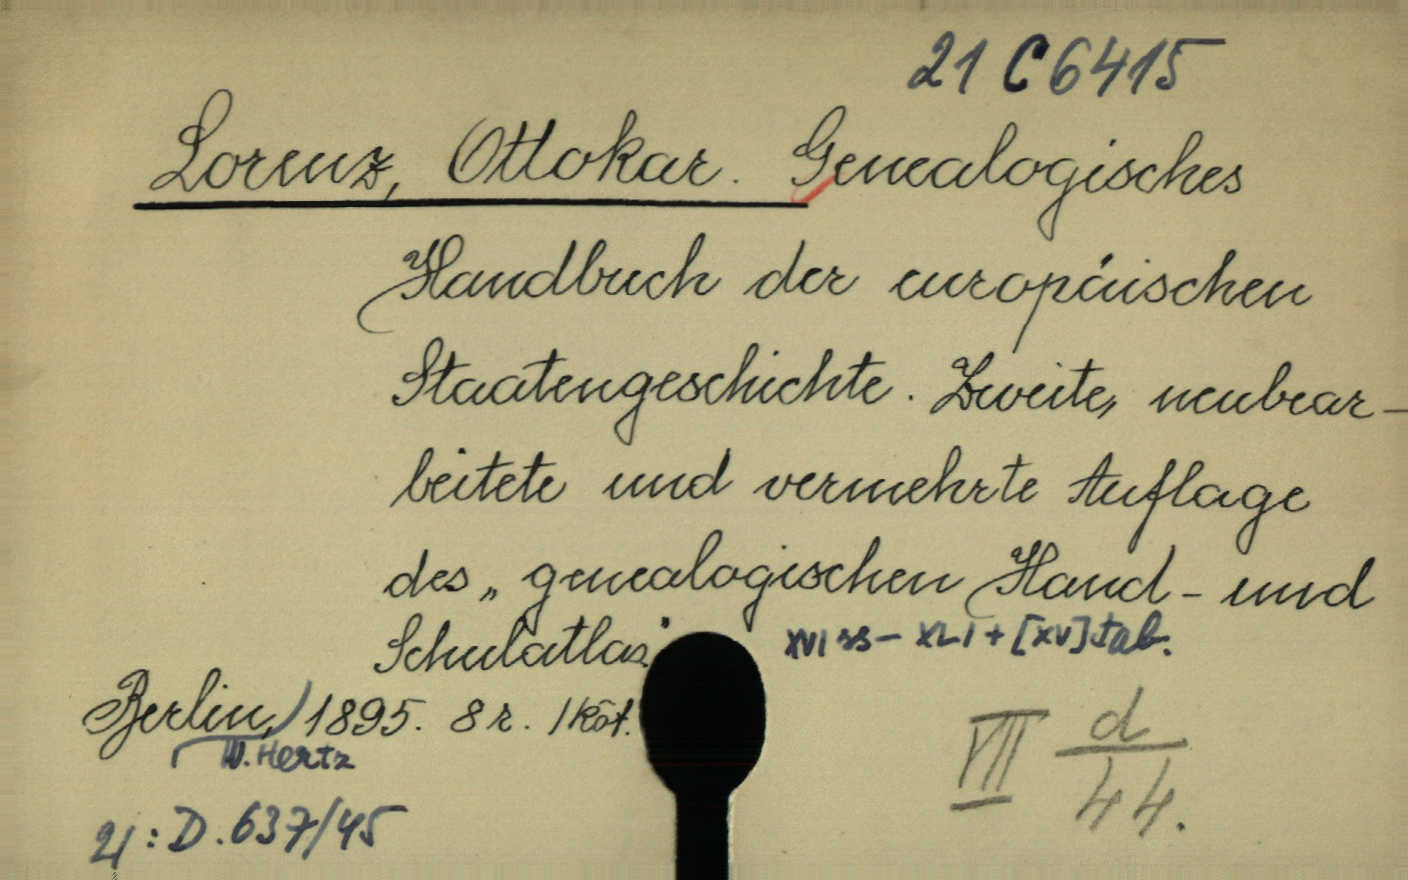 21 C 6415
Lorenz, Ottokar. Genealogisches
Handbuch der europäischen
Staatengeschichte. Zweite, neubear-
beitete und vermehrte Auflage
des „genealogischen Hand- und
Schulatlas"
XVI ss - XLI + [XV] tab.
Berlin, 1895. 8 r. 1 köt.
W. Hertz
VII d/44.
21: D. 637/45